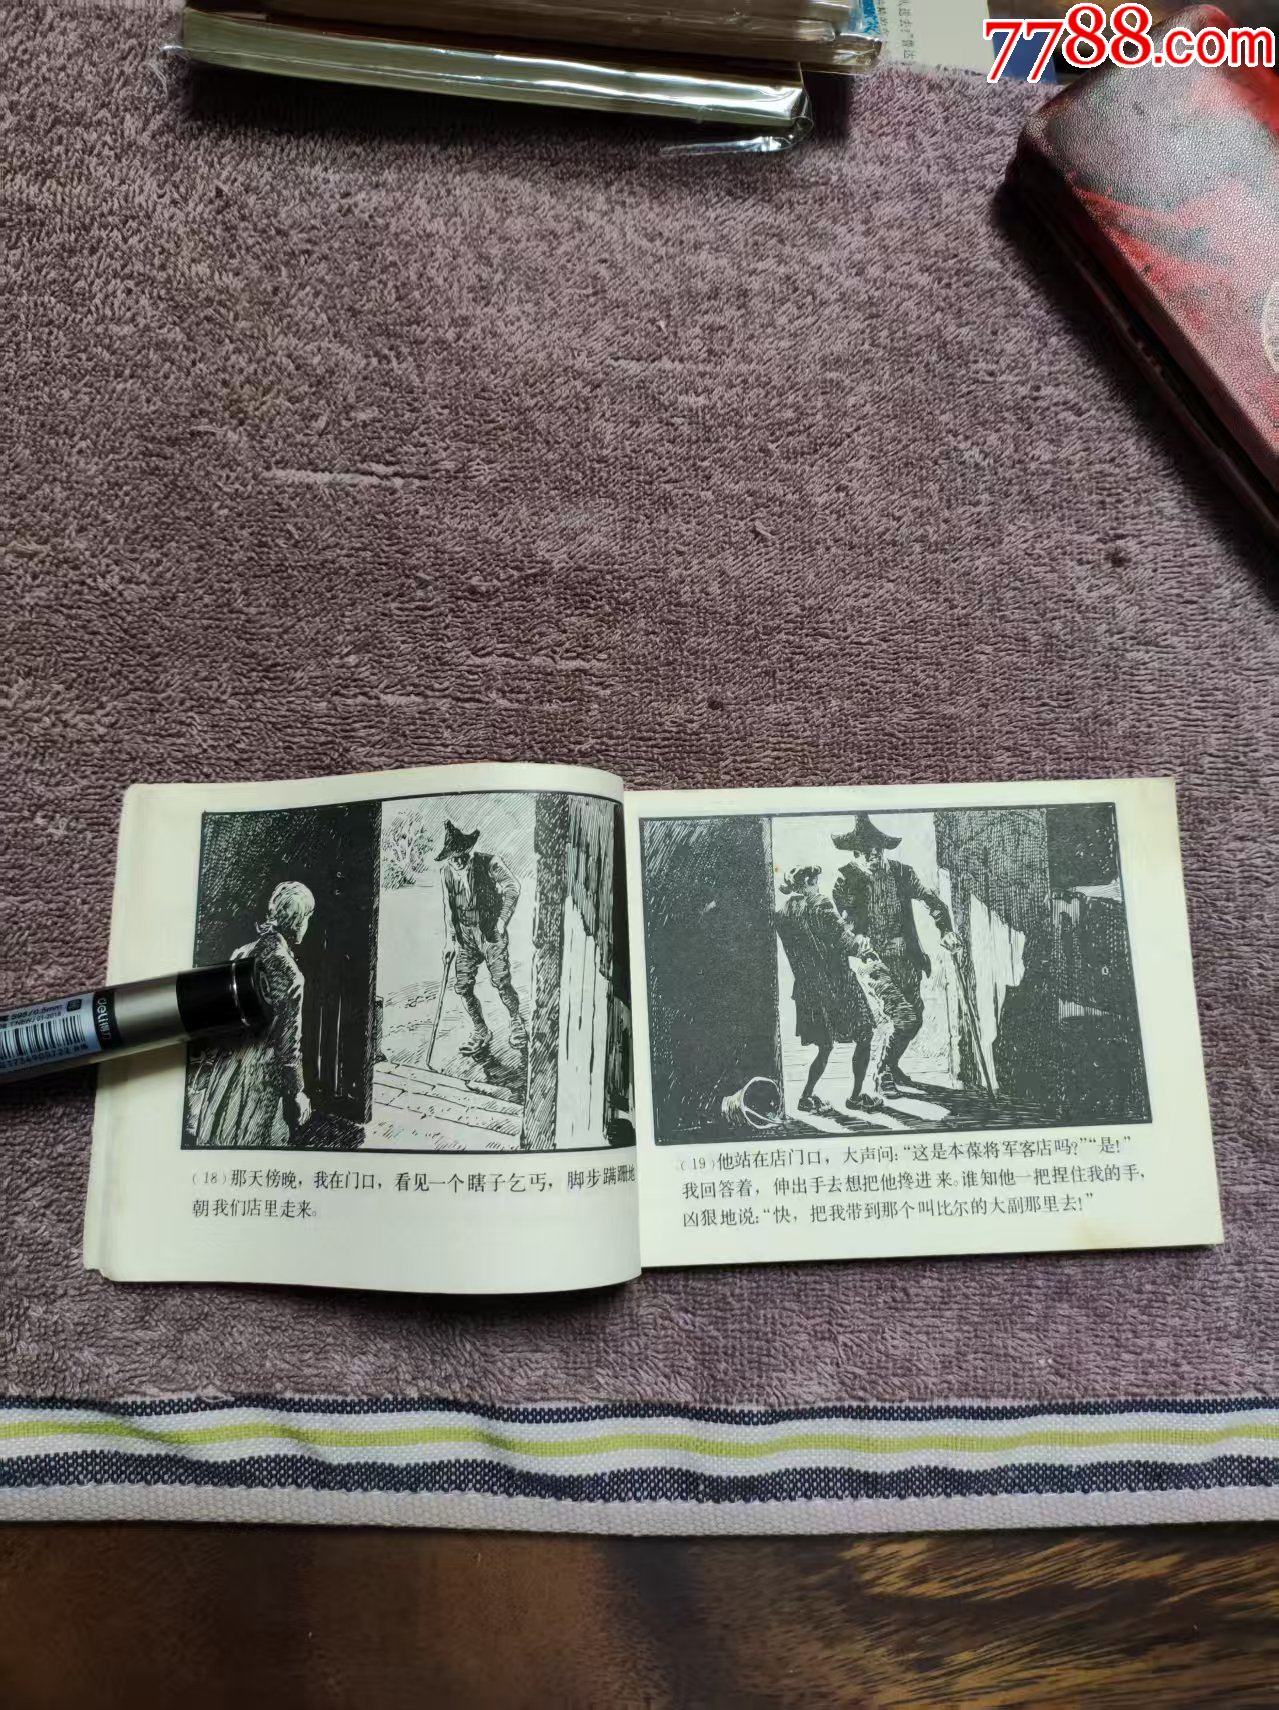 7788.com
(18)那天傍晚，我在门口，看见一个瞎子乞丐，脚步蹒跚地
朝我们店里走来。
(19)他站在店门口，大声问：“这是本葆将军客店吗？”“是！”
我回答着，伸出手去想把他搀进来。谁知他一把捏住我的手，
凶狠地说：“快，把我带到那个叫比尔的大副那里去！”
deli